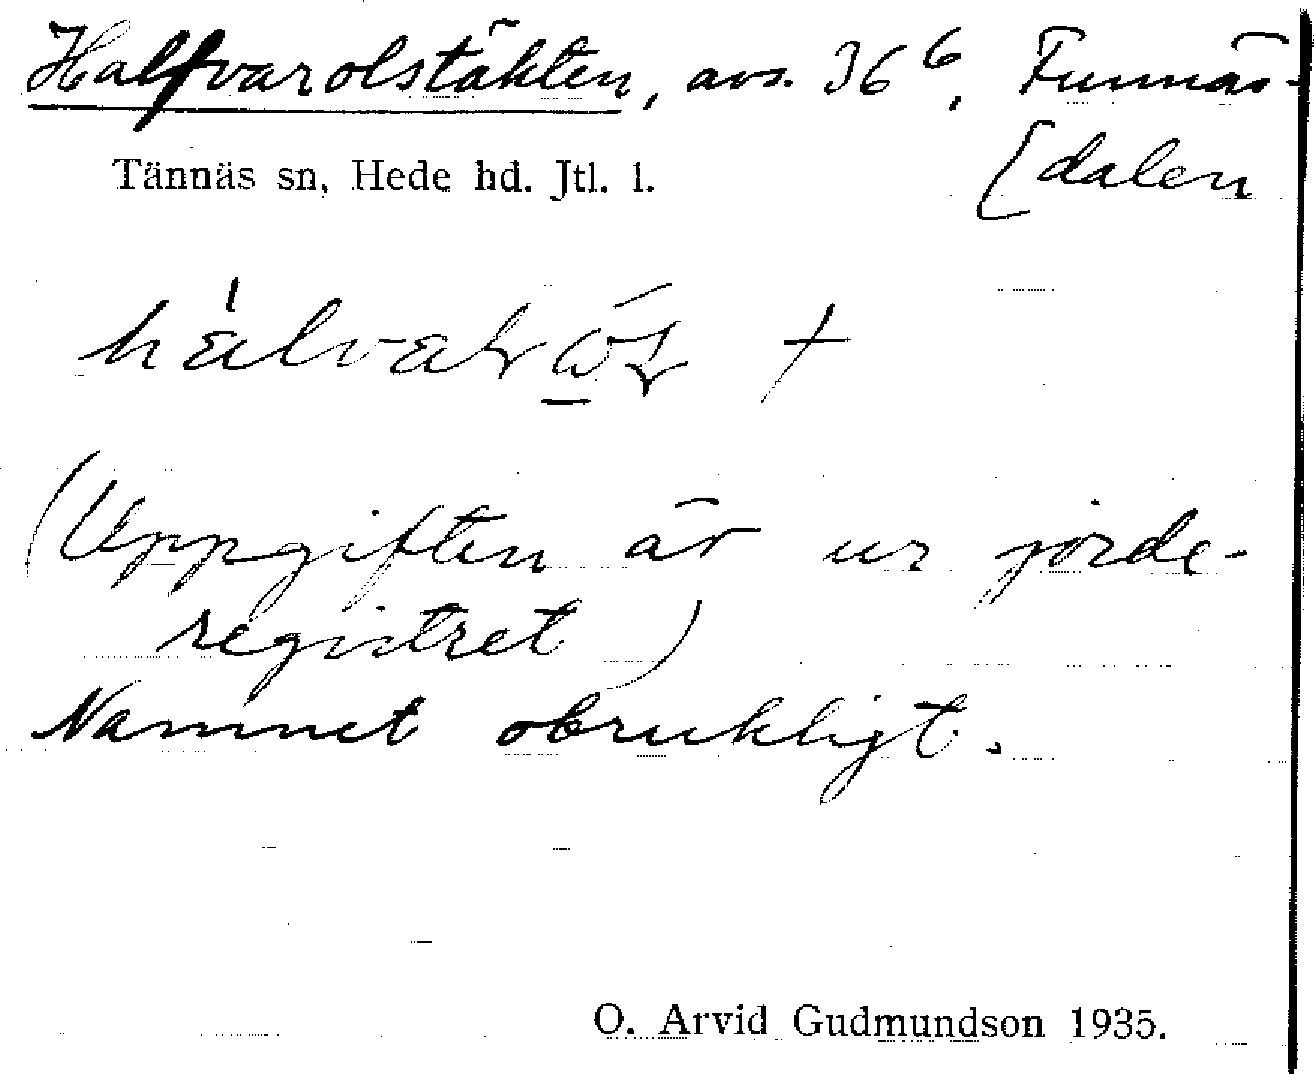 Halfvarolstäkten, avs. 36⁶, Funnäs-
[dalen
Tännäs sn, Hede hd. Jtl. l.
(Uppgiften är ur jorde-
registret)
Namnet obrukligt.
O. Arvid Gudmundson 1935.